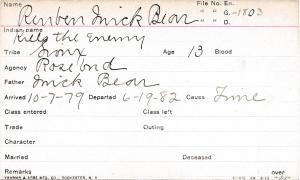 Name Reuben Quick Bear File No. En.
" " G. -1803
Indian name Kills the Enemy " " D.
Tribe Sioux Age 13 Blood
Agency Rosebud
Father Quick Bear
Arrived 10-7-79 Departed 6-19-82 Cause Time
Class entered Class left
Trade Outing
Character
Married Deceased
Remarks over
YAWMAN & ERBE MFG. CO., ROCHESTER, N. Y.